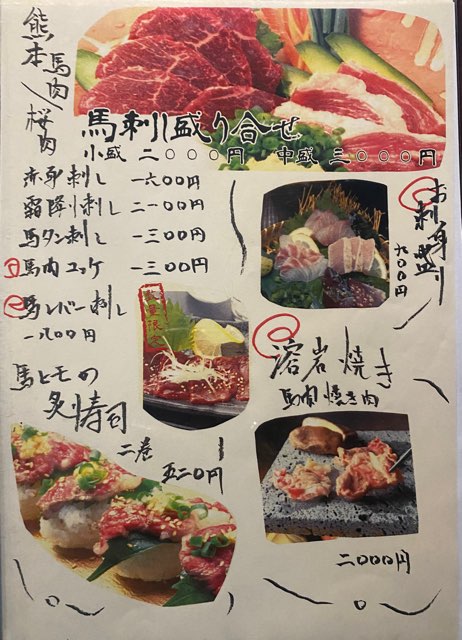 熊本馬肉
桜肉
馬刺し盛り合せ
小盛 二〇〇〇円 中盛 三〇〇〇円
赤身刺し 一六〇〇円
霜降り刺し 二一〇〇円
馬タン刺し 一三〇〇円
馬肉ユッケ 一三〇〇円
馬レバー刺し
一八〇〇円
数量限定
お刺身盛り
馬トモの
炙寿司
二巻
五二〇円
溶岩焼き
馬肉焼き肉
二〇〇〇円